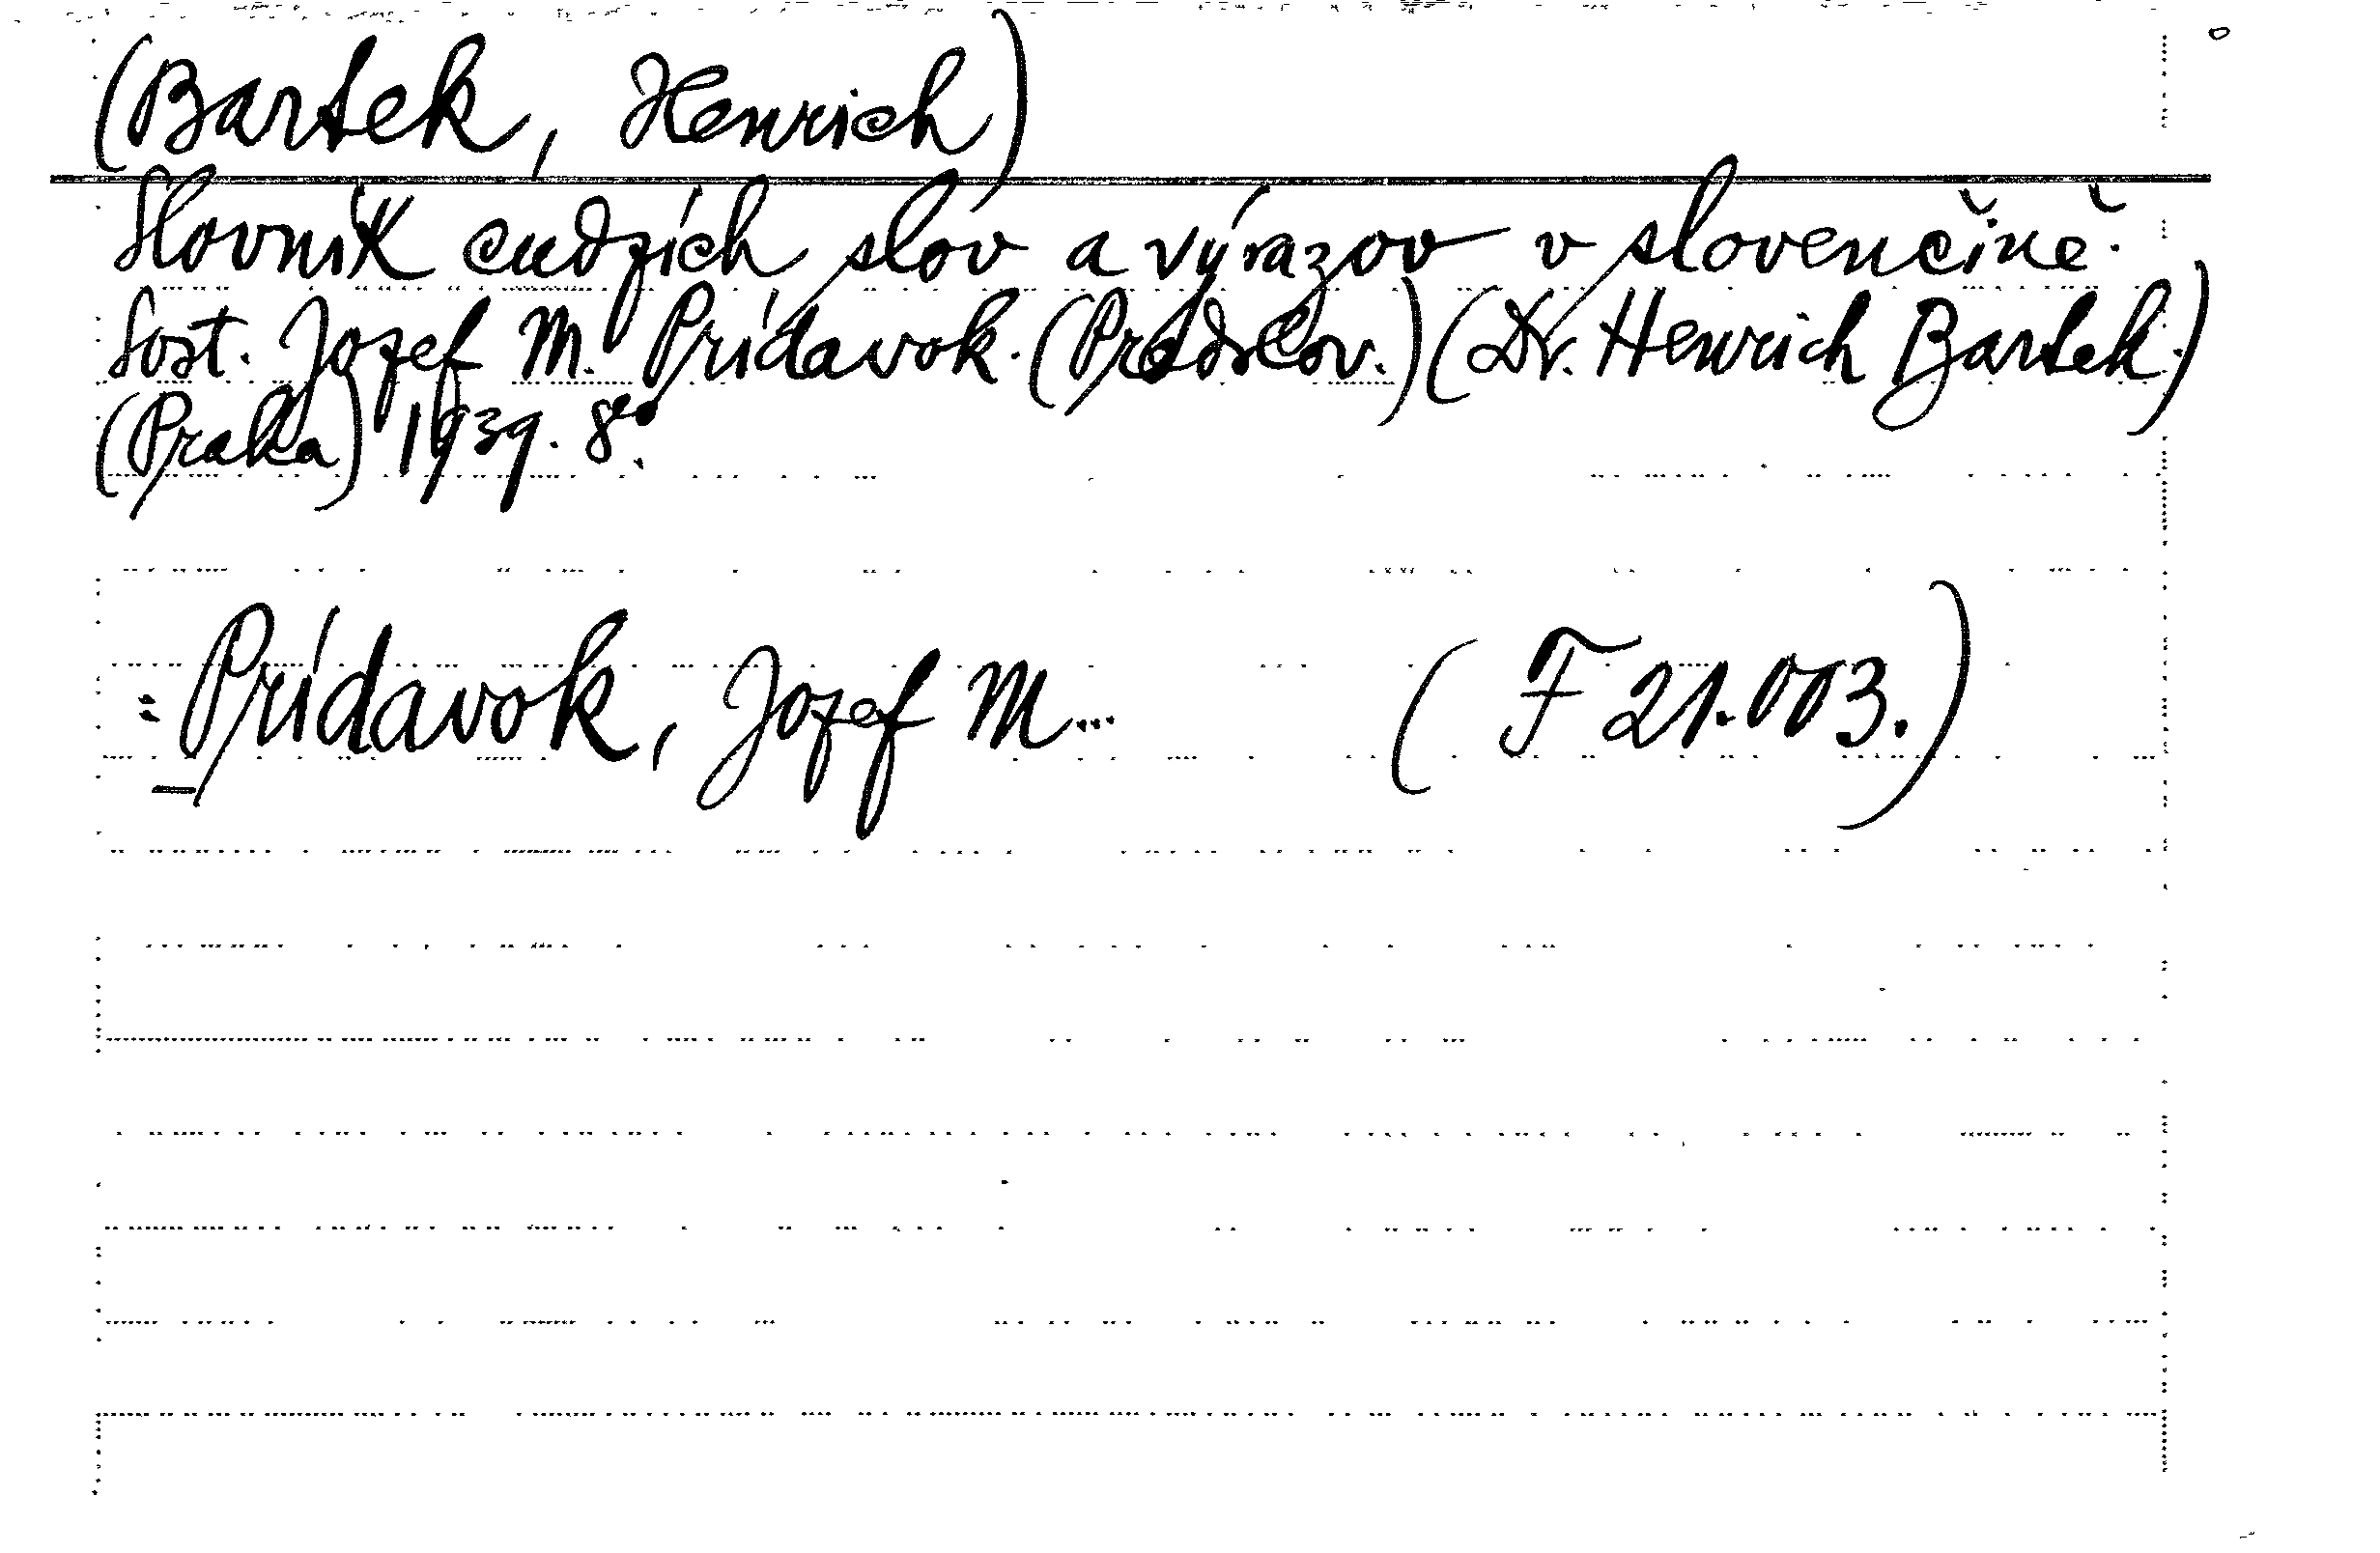 (Bartek, Henrich)
Slovník cudzích slov a výrazov v slovenčině.
Sost. Jozef M. Prídavok. (Predslov.) (Dr. Henrich Bartek.)
(Praha) 1939. 8°.
= Prídavok, Jozef M... (F 21.003.)